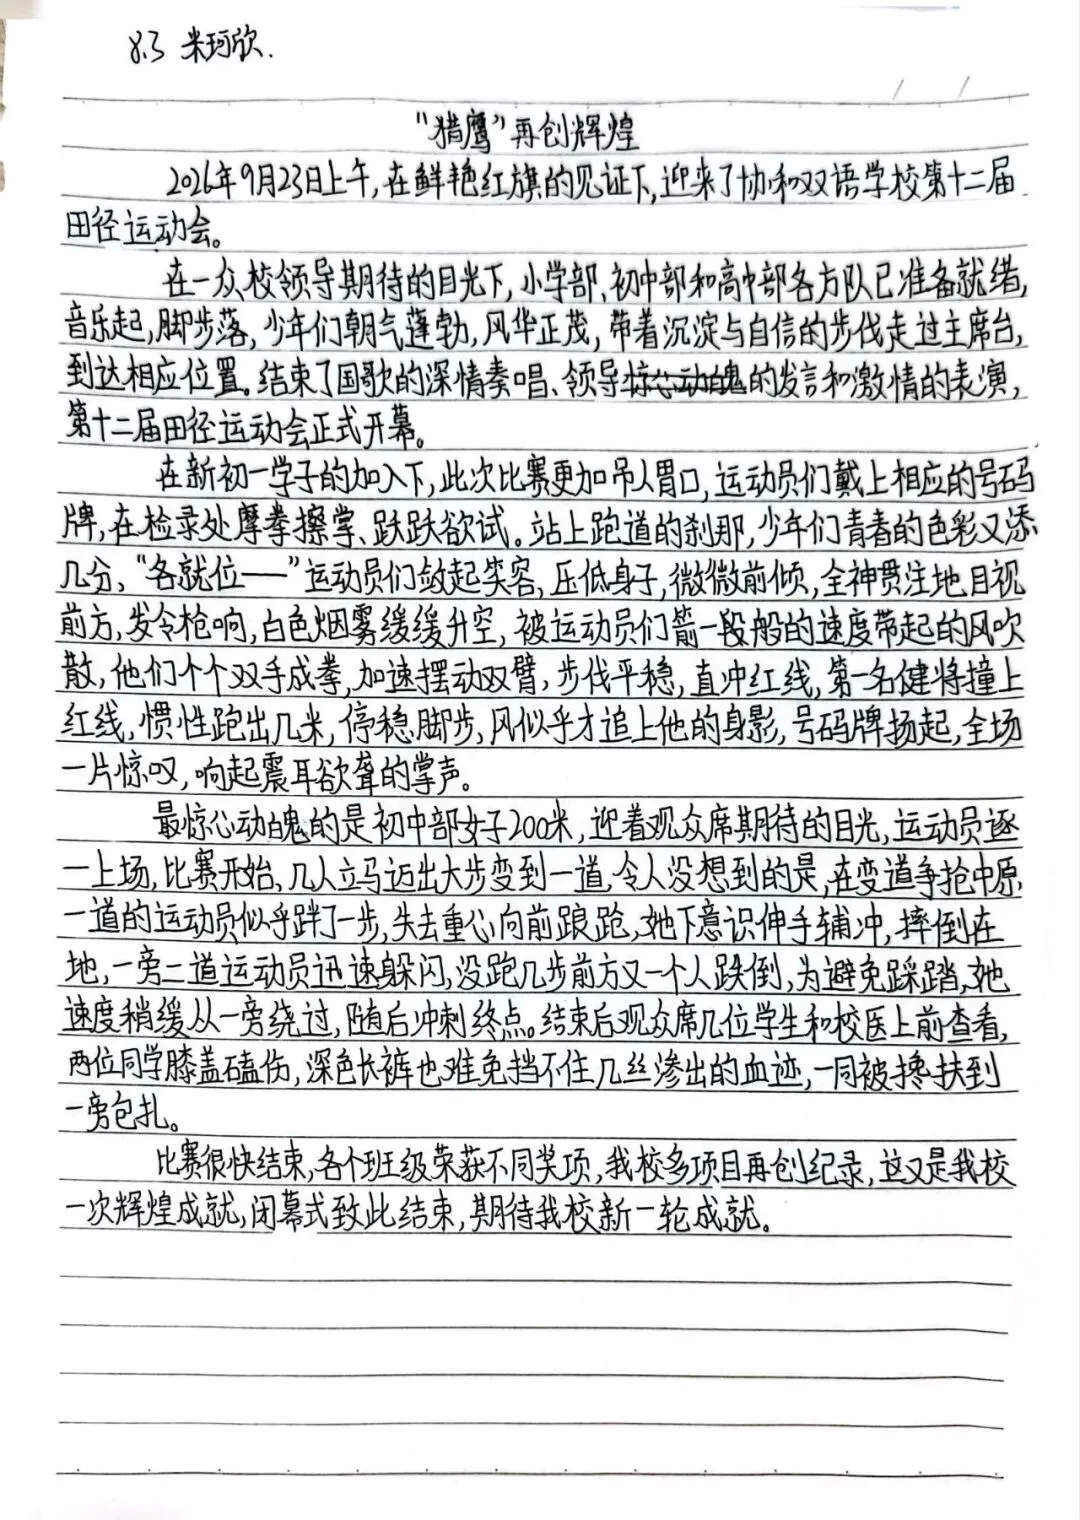 8.3 米珂欣.
“猎鹰”再创辉煌
2026年9月23日上午,在鲜艳红旗的见证下,迎来了协和双语学校第十二届
田径运动会。
在一众校领导期待的目光下,小学部、初中部和高中部各方队已准备就绪,
音乐起,脚步落,少年们朝气蓬勃,风华正茂,带着沉淀与自信的步伐走过主席台,
到达相应位置。结束了国歌的深情奏唱、领导惊心动魄的发言和激情的表演,
第十二届田径运动会正式开幕。
在新初一学子的加入下,此次比赛更加吊人胃口,运动员们戴上相应的号码
牌,在检录处摩拳擦掌、跃跃欲试。站上跑道的刹那,少年们青春的色彩又添
几分、“各就位——”运动员们敛起笑容,压低身子,微微前倾,全神贯注地目视
前方,发令枪响,白色烟雾缓缓升空,被运动员们箭一段般的速度带起的风吹
散,他们个个双手成拳,加速摆动双臂,步伐平稳,直冲红线,第一名健将撞上
红线,惯性跑出几米,停稳脚步,风似乎才追上他的身影,号码牌扬起,全场
一片惊叹,响起震耳欲聋的掌声。
最惊心动魄的是初中部女子200米,迎着观众席期待的目光,运动员逐
一上场,比赛开始,几人立马迈出大步变到一道,令人没想到的是,在变道争抢中原
一道的运动员似乎跘了一步,失去重心向前踉跄,她下意识伸手辅冲,摔倒在
地,一旁二道运动员迅速躲闪,没跑几步前方又一个人跌倒,为避免踩踏,她
速度稍缓从一旁绕过,随后冲刺终点。结束后观众席几位学生和校医上前查看,
两位同学膝盖磕伤,深色长裤也难免挡不住几丝渗出的血迹,一同被搀扶到
一旁包扎。
比赛很快结束,各个班级荣获不同奖项,我校多项目再创纪录,这又是我校
一次辉煌成就,闭幕式致此结束,期待我校新一轮成就。